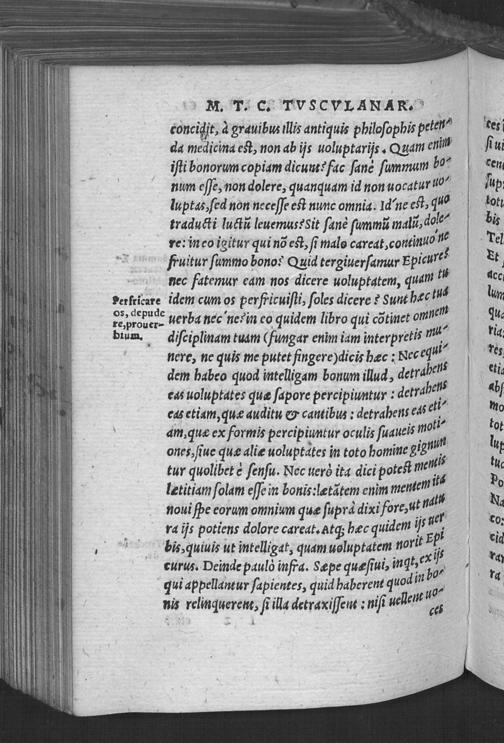 M. T. C. TVSCVLANAR.
concidit, à grauibus illis antiquis philosophis peten-
da medicina est, non ab ijs uoluptarijs. Quam enim
isti bonorum copiam dicunt? fac sanè summum bo-
num esse, non dolere, quanquam id non uocatur uo-
luptas, sed non necesse est nunc omnia. Id'ne est, quo
traducti luctū leuemus? Sit sanè summū malū, dole-
re: in eo igitur qui nō est, si malo careat, continuo'ne
fruitur summo bono? Quid tergiuersamur Epicure?
nec fatemur eam nos dicere uoluptatem, quam tu
idem cum os perfricuisti, soles dicere? Sunt hæc tua
uerba nec'ne? in eo quidem libro qui cōtinet omnem
disciplinam tuam (fungar enim iam interpretis mu-
nere, ne quis me putet fingere) dicis hæc: Nec equi-
dem habeo quod intelligam bonum illud, detrahens
eas uoluptates quæ sapore percipiuntur: detrahens
eas etiam, quæ auditu & cantibus: detrahens eas eti-
am, quæ ex formis percipiuntur oculis suaueis moti-
ones, siue quæ aliæ uoluptates in toto homine gignun
tur quolibet è sensu. Nec uerò ita dici potest mentis
lætitiam solam esse in bonis: lætātem enim mentem ita
noui spe eorum omnium quæ suprà dixi fore, ut natu
ra ijs potiens dolore careat. Atq; hæc quidem ijs uer
bis, quiuis ut intelligat, quam uoluptatem norit Epi
curus. Deinde paulò infra. Sæpe quæsiui, inqt, ex ijs
qui appellantur sapientes, quid haberent quod in bo-
nis relinquerent, si illa detraxissent: nisi uellent uo-
ces
Perfricare
os, depude
re, prouer-
bium.